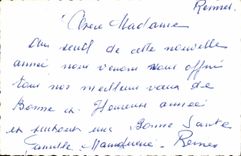 Rennes.
Chère Madame
Au seuil de cette nouvelle
année nous venons vous offrir
tous nos meilleurs vœux de
Bonne et Heureuse année
en souhaitant une Bonne Santé
Famille Rennes